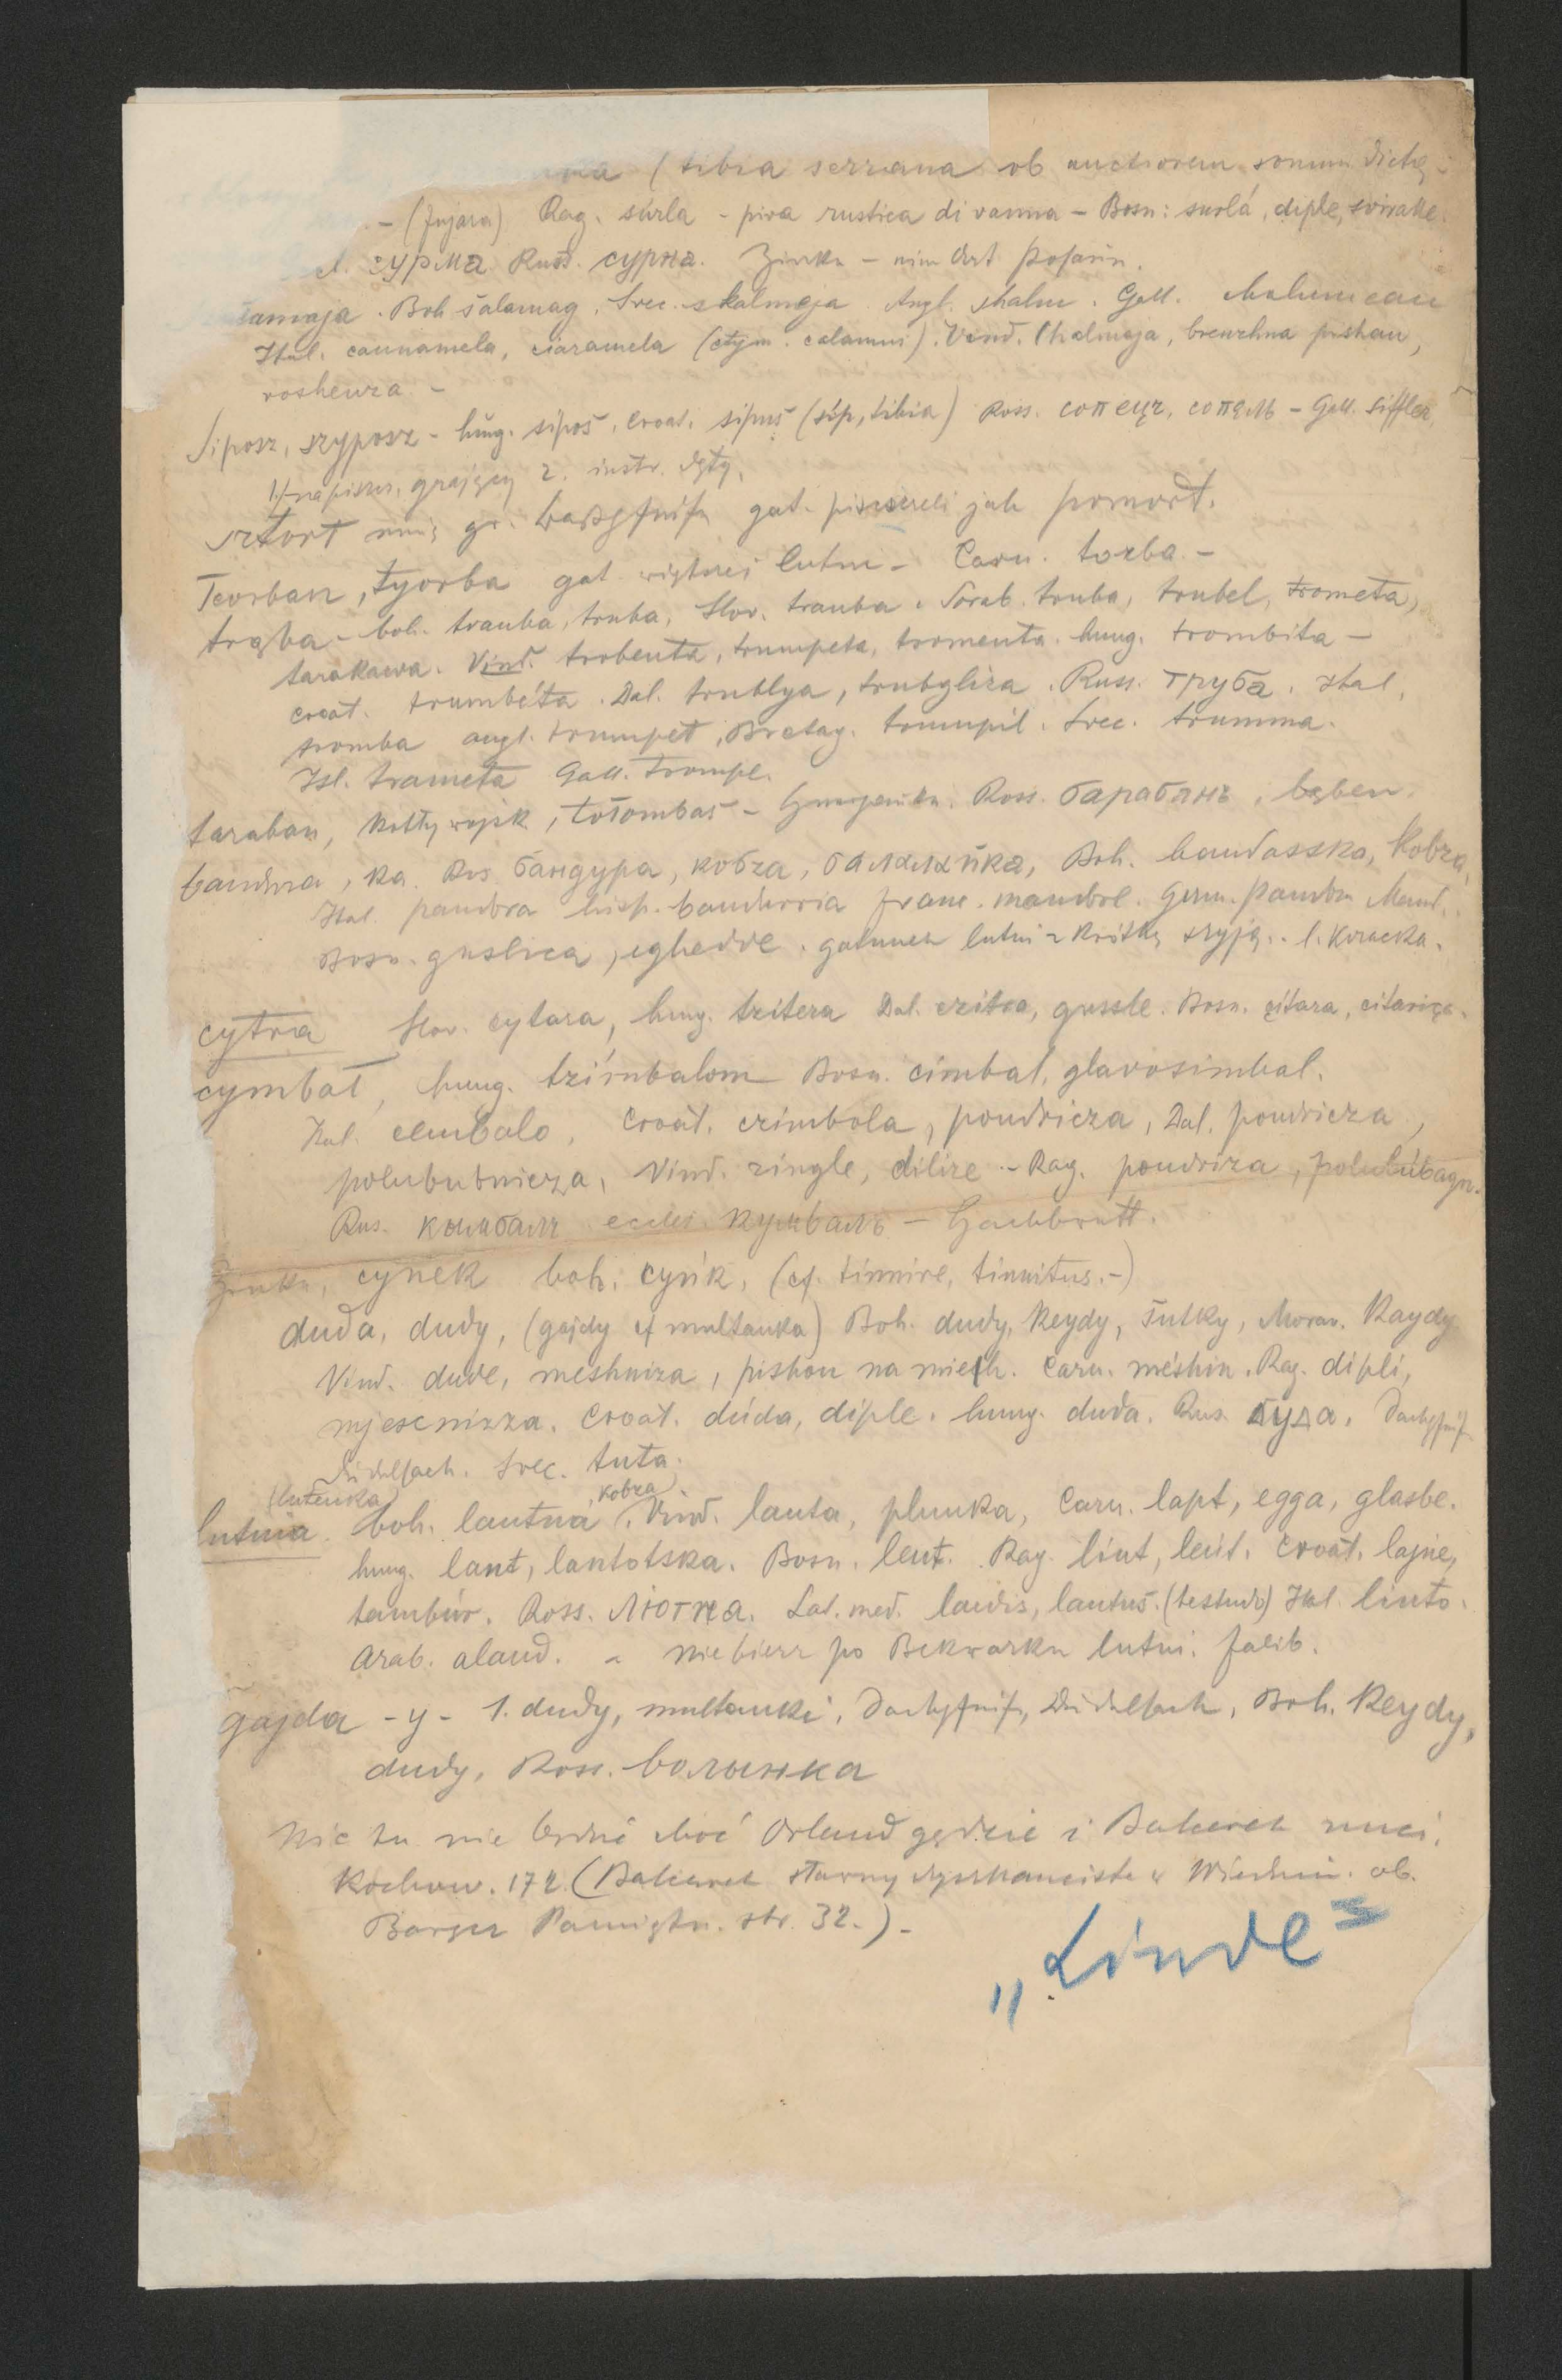 (tibia serrana ob auctiorem sonum dicta -
- (fujara) Rag. surla - piva rustica di canna - Bosn: surla, diple, svirale
сурма Russ. сурна. Zinka -
amaja. Boh šalamag, Svec. skalmeja Angl. shalm. Gall. chalumeau
Ital. cannamela, ciaramela (etym. calamus). Vind. shalmaja, pishau,
roshenza. -
Siposz, szyposz - hung. sipoš, Croat. sipuš (sip, tibia) Ross. сопецъ, сопѣль - Gall. siffler,
1./ na piszcz. grający 2. instr. dęty.
sztort muz gr. gat. piszczeli jak pomort.
Teorban, tyorba gat. większej lutni - Carn. torba. -
trąba - boh. trauba, truba, Slov. trauba. Sorab. truba, trubel, trometa,
tarakawa. Vind. trobenta, trumpeta, tromenta. hung. trombita -
croat. trumbéta. Dal. trublya, trubgliza. Russ. труба. Ital.
tromba angl. trumpet, Bretag. trumpil. Svec. trumma.
Isl. trameta Gall. trompe.
taraban, kotły wojsk, tołombas - Ross. барабанъ, bęben.
bandura, ka. Ros бандура, кобза, балалайка, Boh. bandasska, kobza,
Ital. pandora hisp. bandurria franc. mandore. Germ. Pandor
Bosn. guslica, eghedde. gatunek lutni z krótką szyją. l. kozacka.
cytra Slov. cytara, hung. tzitera Dal. czitra, gussle. Bosn. çitara, citariça.
cymbał, hung. tzimbalom Bosn. cimbal, glavosimbal.
Ital. cembalo, Croat. czimbola, poudricza, Dal. poudricza,
polububnicza, Vind. zingle, dilize - Rag. poudriza,
Rus. кимбалъ eccles. кумвалъ - Hackbrett.
Zinka, cynek boh. cynk, (cf. tinnire, tinnitus. -)
duda, dudy, (gajdy cf multanka) Boh. dudy, keydy, šutky, Morav. kaydy
Vind. dude, meshniza, pishou na mieh. Carn. méshin. Rag. dipli,
mjescnizza. Croat. dúda, diple. hung. duda. Rus. дуда.
Dudelsack. Svec. tuta.
(lutenka) kobza
lutnia. boh. lautna, Vind. lauta, plunka, Carn. lapt, egga, glasbe.
hung. lant, lantotska. Bosn. leut. Rag. liut, leút. Croat. lajne,
tambúr. Ross. Лютна. Lat. med. laudis, lautus. (testudo) Ital. liuto.
Arab. alaud. - nie bierz po Bekwarku lutni. Falib.
gajda - y - 1. dudy, multanki, Dudelsack, Boh. keydy,
dudy, Ross. волынка
Nic tu nie choć Orland gędzie i Bakwark nuci.
Kochow. 172. (Bakwark sławny dyszkancista w Wiedniu. ob.
Pamiętn. str. 32.) -
„Linde"